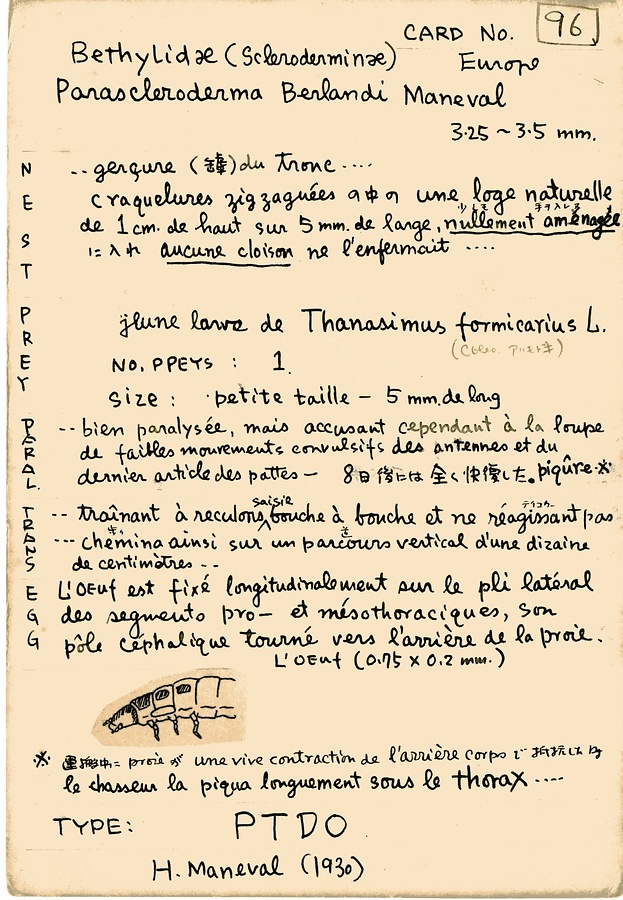 CARD No. 96
Bethylidæ (Scleroderminæ) Europe
Parascleroderma Berlandi Maneval
3.25 ~ 3.5 mm.
NEST
-- gerçure (罅) du tronc ....
craquelures zigzaguées の中の une loge naturelle
de 1 cm. de haut sur 5 mm. de large, nullement aménagée
に入れ aucune cloison ne l'enfermait ....
PREY
jeune larve de Thanasimus formicarius L.
(Coleo.
NO. PPEYS : 1.
size : petite taille – 5 mm. de long
PARAL.
-- bien paralysée, mais accusant cependant à la loupe
de faibles mouvements convulsifs des antennes et du
dernier article des pattes – 8日後には全く快復した。piqûre ※
TRANS
saisie
-- traînant à reculons, bouche à bouche et ne réagissant pas
--- chemina ainsi sur un parcours vertical d'une dizaine
de centimètres --
EGG
L'OEuf est fixé longitudinalement sur le pli latéral
des segments pro- et mésothoraciques, son
pôle céphalique tourné vers l'arrière de la proie.
L'OEuf (0.75 x 0.2 mm.)
※ 運搬中に proie が une vive contraction de l'arrière corps で抵抗した
le chasseur la piqua longuement sous le thorax ....
TYPE: PTDO
H. Maneval (1930)